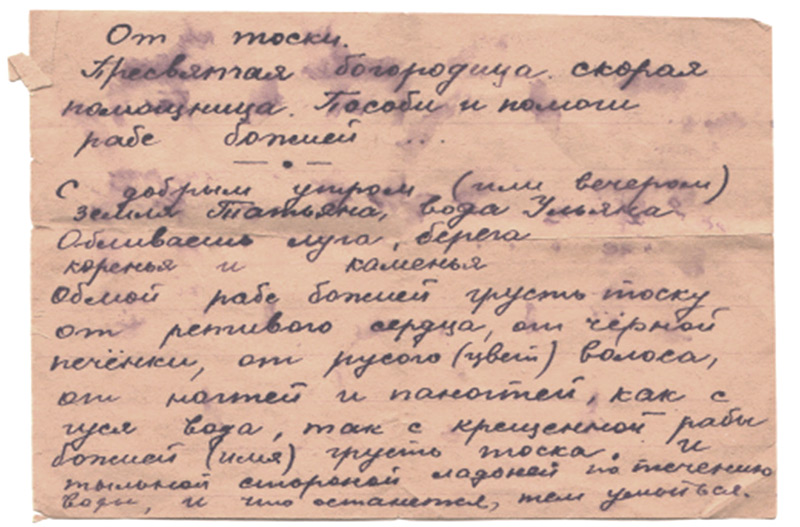 От тоски.
Пресвятая богородица. скорая
помощница. Пособи и помоги
рабе божией ...
— • —
С добрым утром (или вечером)
земля Татьяна, вода Ульяна
Обливаешь луга, берега
коренья и каменья
Обмой рабе божией грусть тоску
от ретивого сердца, от чёрной
печёнки, от русого (цвет) волоса,
от ногтей и паногтей, как с
гуся вода, так с крещенной рабы
божией (имя) грусть тоска. и
тыльной стороной ладоней по течению
воды, и что останется, тем умыться.